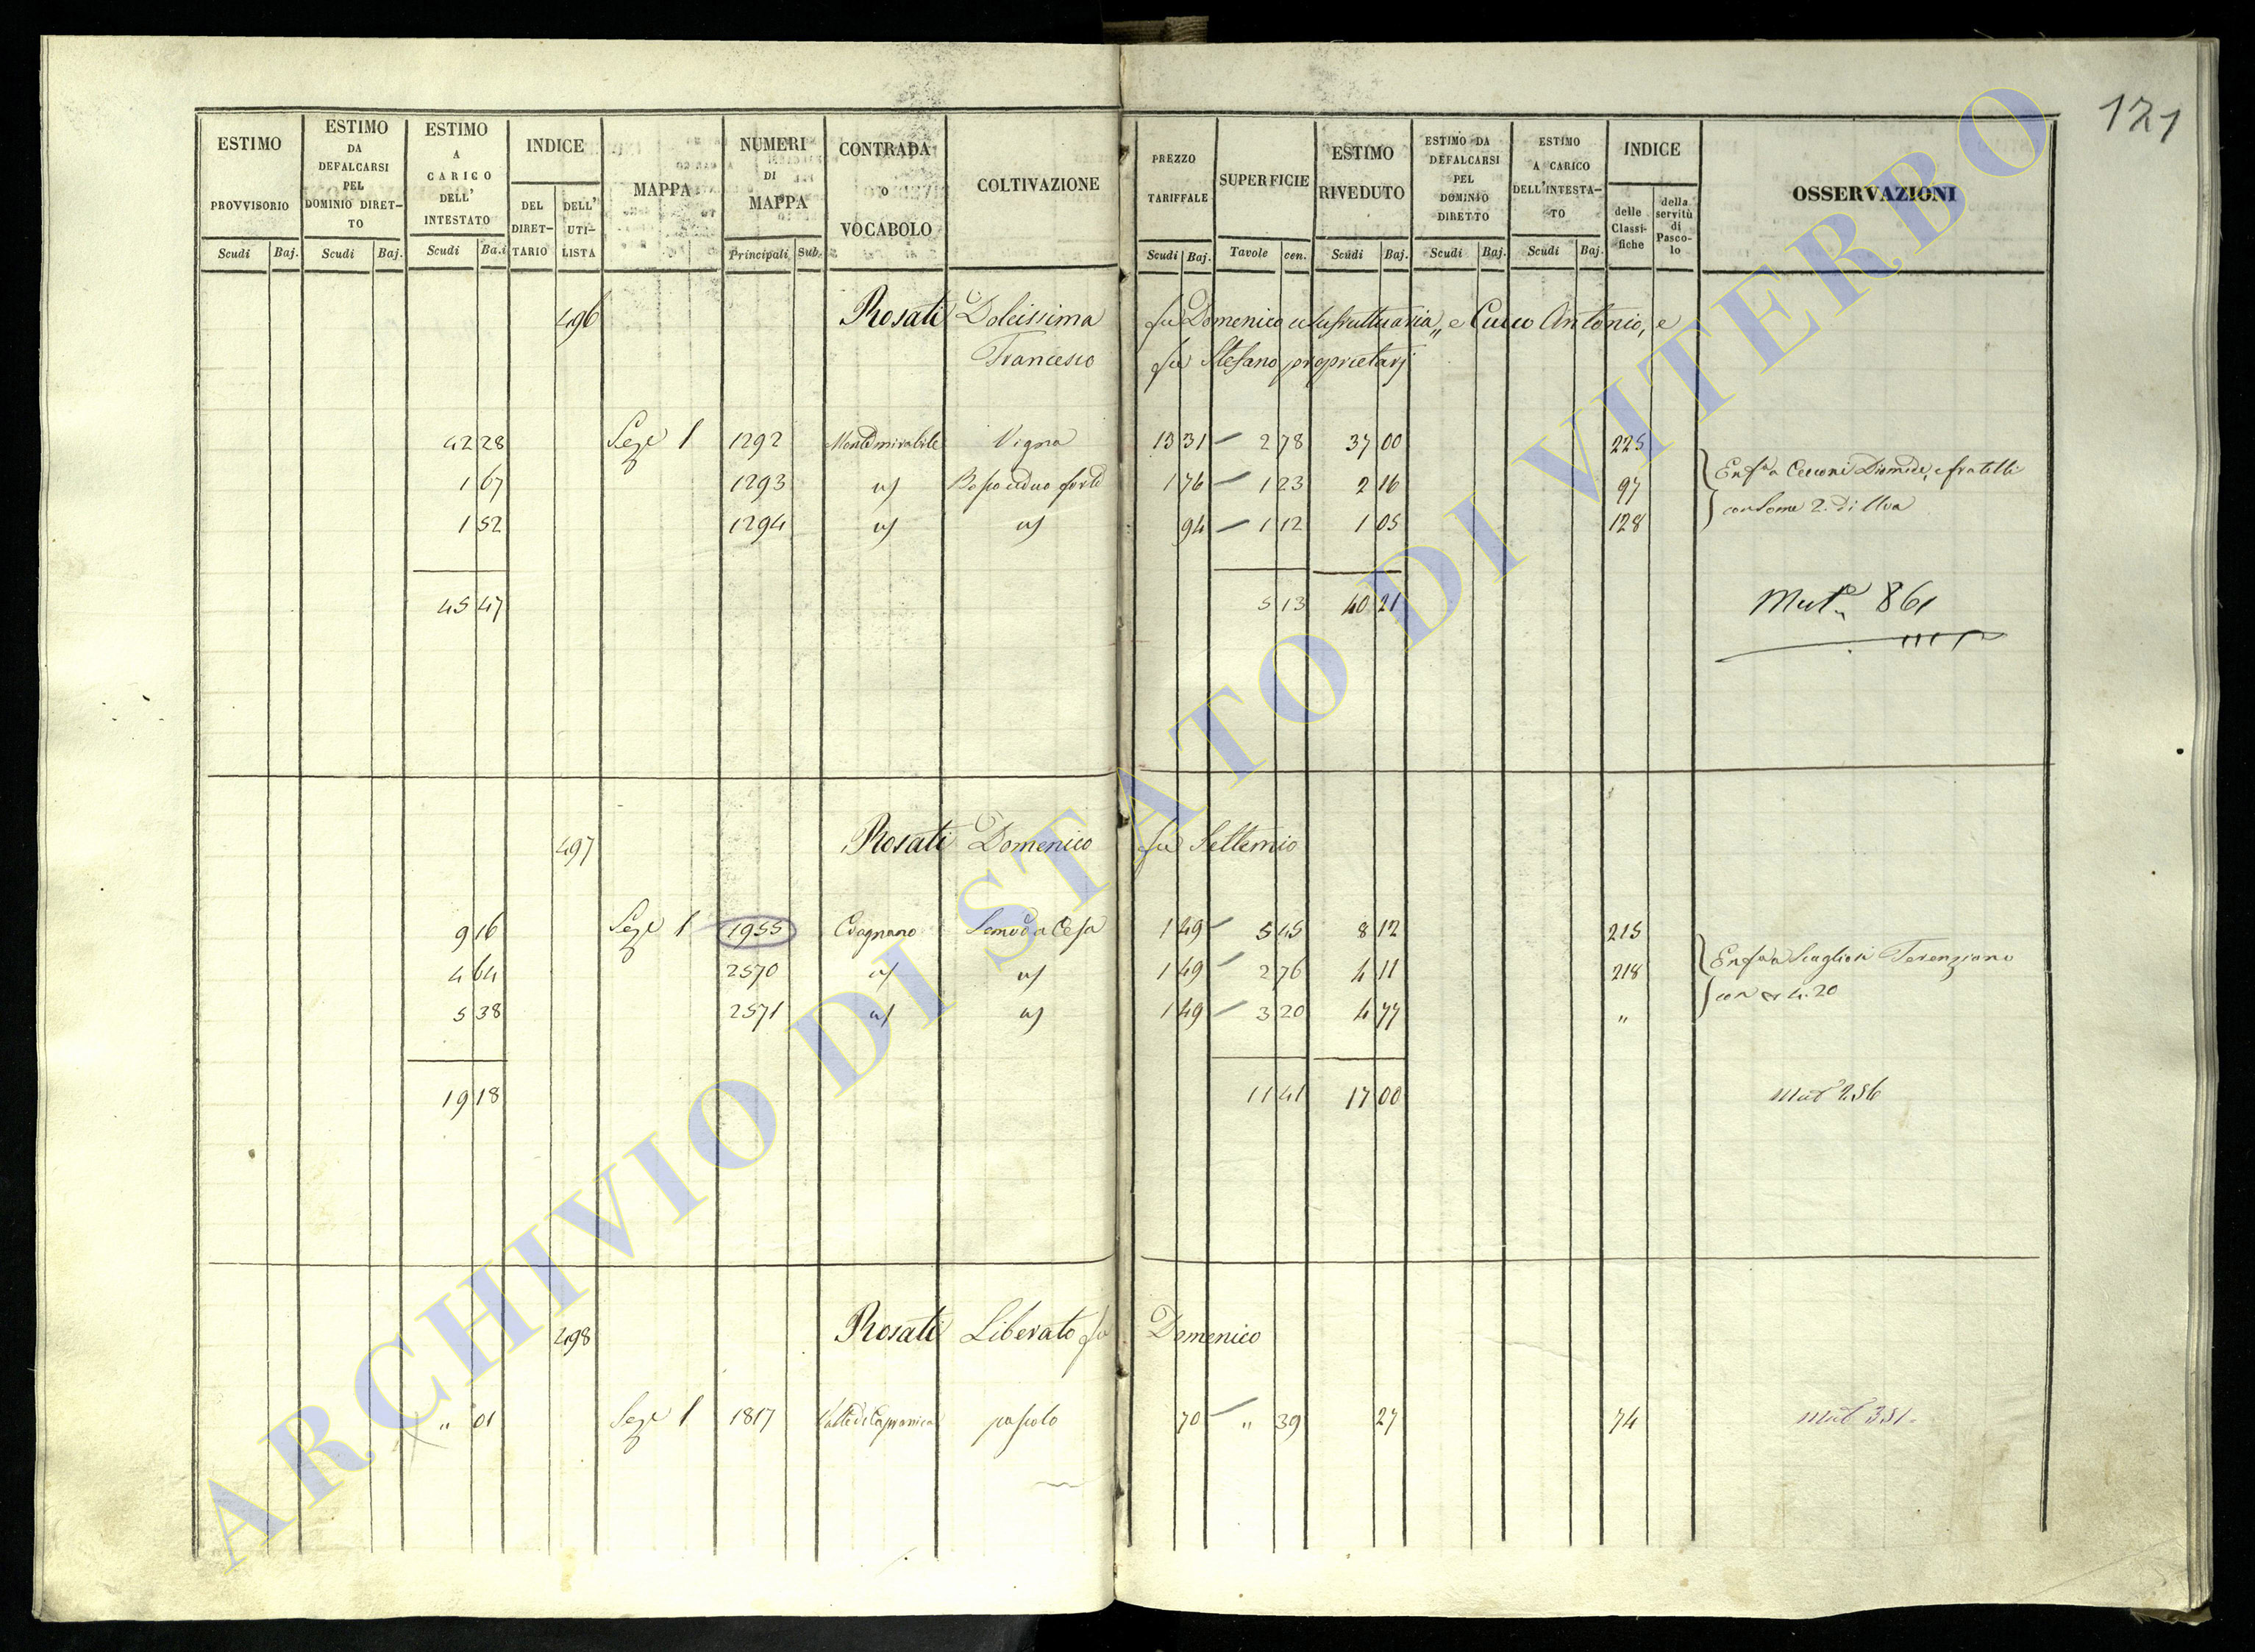 121
ESTIMO PROVVISORIO
Scudi Baj.
ESTIMO DA DEFALCARSI PEL DOMINIO DIRETTO
Scudi Baj.
ESTIMO A CARICO DELL' INTESTATO
Scudi Baj.
INDICE
DEL DIRETTARIO
DELL' UTILISTA
MAPPA
NUMERI DI MAPPA
Principali Sub.
CONTRADA O VOCABOLO
COLTIVAZIONE
PREZZO TARIFFALE
Scudi Baj.
SUPERFICIE
Tavole cen.
ESTIMO RIVEDUTO
Scudi Baj.
ESTIMO DA DEFALCARSI PEL DOMINIO DIRETTO
Scudi Baj.
ESTIMO A CARICO DELL'INTESTATO
Scudi Baj.
INDICE
delle Classifiche
della servitù di Pascolo
OSSERVAZIONI
496 Rosati Dolcissima fu Domenico usufruttuaria, e Cucco Antonio, e
Francesco fu Stefano proprietarj
42 28 Sez.e 1 1292 Montemirabile Vigna 13 31 2 78 37 00 225
1 67 1293 Bosco ceduo forte 1 76 1 23 2 16 97 Enf.a Cecconi Diomede, e fratelli
1 52 1294 94 1 12 1 05 128 con Some 2. di Uva
45 47 5 13 40 21 Mut.e 861
497 Rosati Domenico fu Settimio
9 16 Sez.e 1 1955 Cagnano 1 49 5 45 8 12 215
4 64 2570 1 49 2 76 4 11 218 Enf.a Terenziano
5 38 2571 1 49 3 20 4 77 " con 4.20
19 18 11 41 17 00 Mut.e 256
498 Rosati Liberato fu Domenico
" 01 Sez.e 1 1817 Valle di Capranica pascolo 70 " 39 27 74 Mut.e 351
ARCHIVIO DI STATO DI VITERBO